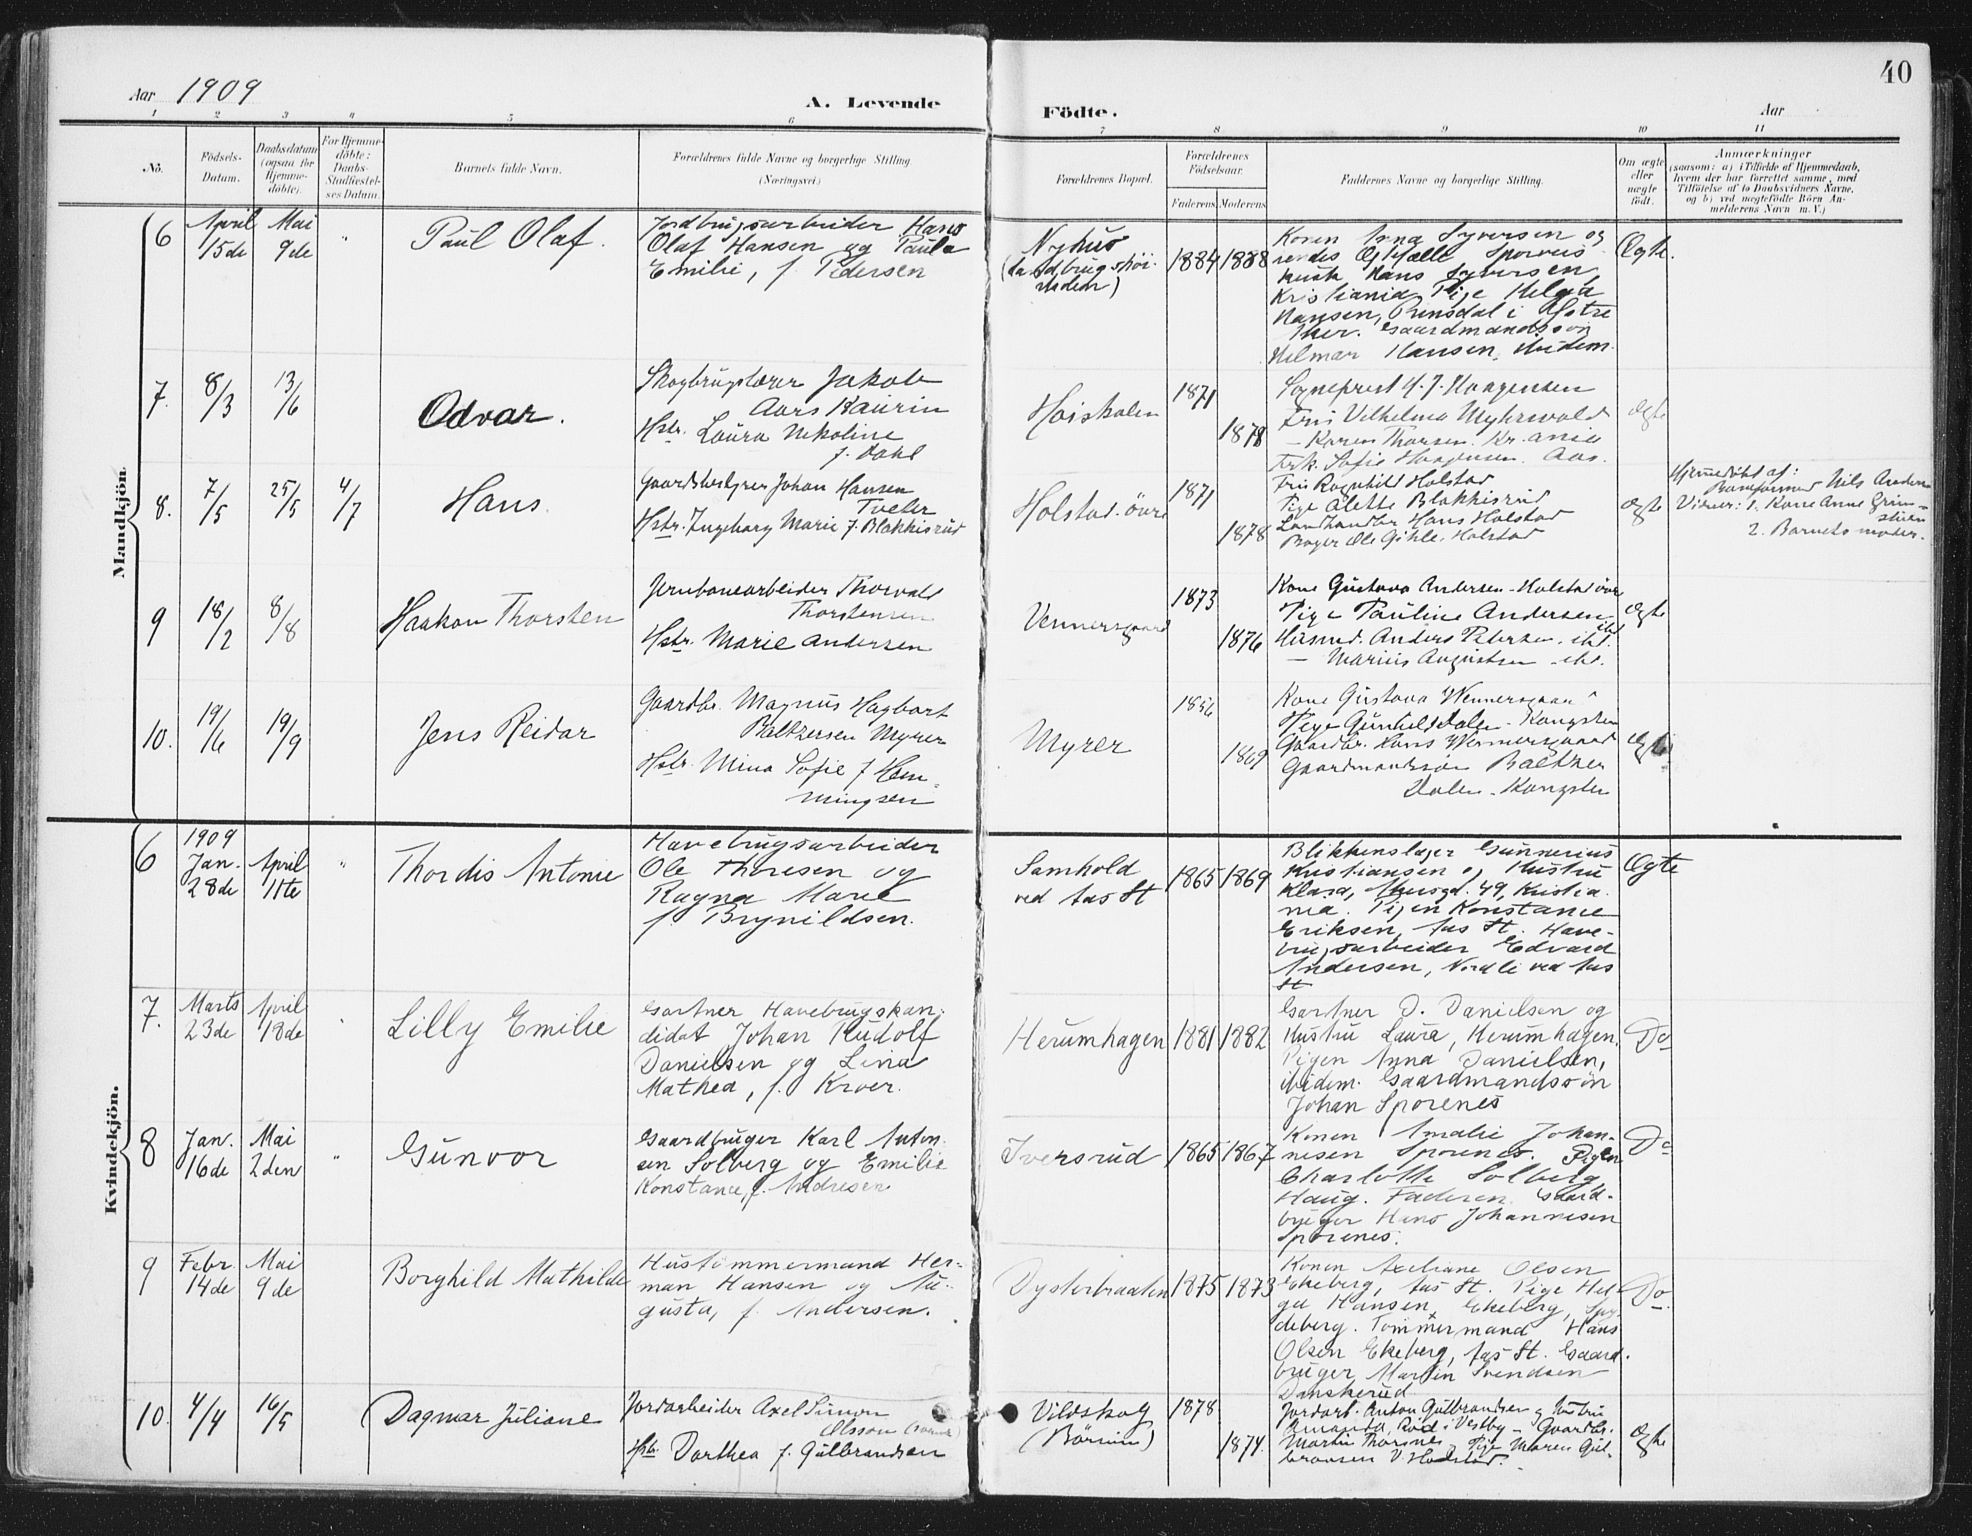 40
Aar 1909
A. Levende
Födte.
Aar
1 2 3 4 5 6 7 8 9 10 11
No.
Födsels-
Datum.
Daabsdatum
(ogsaa for
Hjemme-
döbte).
For Hjemme-
döbte:
Daabs-
Stadfæstel-
ses Datum.
Barnets fulde Navn.
Forældrenes fulde Navne og borgerlige Stilling
(Næringsvei.)
Forældrenes Bopæl.
Forældrenes
Födselsaar.
Faderens. Moderens.
Faddernes Navne og borgerlige Stilling.
Om ægte
eller
uægte
födt.
Anmærkninger
(saasom: a) i Tilfælde af Hjemmedaab,
hvem der har forrettet samme, med
Tilföielse af to Daabsvidners Navne,
og b) ved uægtefödte Börn An-
melderens Navn m. V.)
Mandkjön.
6
April
15de
Mai
9de
"
Paul Olaf.
Jordbrugsarbeider Hans
Olaf Hansen og Paula
Emilie, f. Pedersen
Nyhus
(Landbrugshöi-
skolen)
1884
1888
Konen Anna Syversen og
hendes Ægtefælle Sporveis-
kusk Hans Syversen,
Kristiania, Pige Helga
Hansen, Prinsdal i Østre
Aker. Gaardmandssøn
Hilmar Hansen, ibidem.
Ægte.
7.
8/3
13/6
Odvar.
Skogbrugslærer Jakob
Aars Kaurin
Hstr. Laura Nekoline
f. Dahl
Høiskolen
1871
1878
Sogneprest H. J. Haagensen
Frk. Vilhelma Myhrwold
– Karen Thorsen. Kr.ania
Frk. Sofie Haagensen. Aas.
ægte
8.
7/5
25/5
4/7
Hans.
Gaardbestyrer Johan Hansen
Tveter
Hstr. Ingeborg Marie f. Blakkisrud
Holstad-övre
1871
1878
Frk Ragnhild Holstad
Pige Alette Blakkisrud
Landhandler Hans Holstad
Bager Ole Gihle, Holstad
ægte
Hjemmedöbt af:
Barnformod Nils Andersen
Vidner: 1. Kone Anne Grim-
stien
2. Barnets moder.
9
18/2
8/8
Haakon Thorsten
Jernbanearbeider Thorvald
Thorstensen
Hstr. Marie Andersen
Vennersgaard
1873
1876
Kone Gustava Andersen – Holstad övre
Pige Pauline Andersen ibd.
Husmd. Anders Petersen – ibd.
– Marius Augustsen – ibd.
ægte
10.
19/6
19/9
Jens Reidar
Gaardbr. Magnus Hagbart
Baltzersen Myrer
Hstr. Mina Sofie f. Hem-
mingsen
Myrer
1856
1869
Kone Gustava Wennersgaard
Pige Gunhild Dalen – Kongsten
Gaardbr. Hans Wennersgaard
Gaardmandssøn Baltzer
Dalen – Kongsten
ægte
Kvindekjön.
6
1909
Jan.
28de
April
11te
"
Thordis Antonie
Havebrugsarbeider
Ole Thoresen og
Ragna Marie
f. Brynildsen.
Samhold
ved Aas St
1865
1869
Blikkenslager Gunnerius
Kristiansen og Hustru
Klara, Akersgd. 49, Kristia-
nia. Pigen Konstance
Eriksen, Aas St. Have-
brugsarbeider Edvard
Andersen, Nordli ved Aas
St
Ægte
7.
Marts
23de
April
18de
Lilly Emilie
Gartner Havebrugskan-
didat Johan Rudolf
Danielsen og Lina
Mathea, f. Kroer.
Herumhagen
1881
1882
Gartner D. Danielsen og
Hustru Laura, Herumhagen.
Pigen Anna Danielsen,
ibidem. Gaardmandssøn
Johan Sporenes
Do
8
Jan.
16de
Mai
2den
"
Gunvor
Gaardbruger Karl Anton-
sen Solberg og Emilie
Konstance, f. Andresen
Iversrud
1865
1867
Konen Amalie Johan-
nesen Sporenes. Pigen
Charlotte Solberg,
Haug. Faderen. Gaard-
bruger Hans Johannesen
Sporenes.
Do
9
Febr.
14de
Mai
9de
Borghild Mathilde
Hustømmermand Her-
man Hansen og Au-
gusta, f. Andersen.
Dysterbraaten
1875
1873
Konen Axeliane Olsen
Ekeberg, Aas St. Pige Hel-
ga Hansen, Ekeberg, Spy-
deberg. Tømmermand Hans
Olsen Ekeberg, Aas St. Gaard-
bruger Martin Svendsen
Danskerud.
Do
10.
4/4
16/5
Dagmar Juliane
Jordarbeider Axel Simon
Olsson
Hstr. Dorthea f. Gulbrandsen
Vildskog
(Börsum)
1878
1874.
Jordarb. Anton Gulbrandsen og Hustru
Amanda, Rød i Vestby – Gaardbr.
Martin Thorsnes, Pige Maren Gul-
brandsen V. Holstad.
ægte